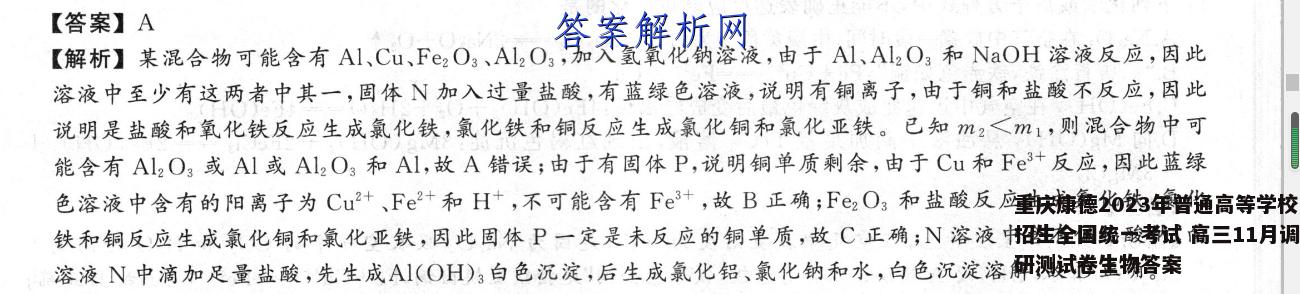 【答案】A
答案解析网
【解析】某混合物可能含有 Al、Cu、Fe₂O₃、Al₂O₃,加入氢氧化钠溶液,由于 Al、Al₂O₃ 和 NaOH 溶液反应,因此
溶液中至少有这两者中其一,固体 N 加入过量盐酸,有蓝绿色溶液,说明有铜离子,由于铜和盐酸不反应,因此
说明是盐酸和氧化铁反应生成氯化铁,氯化铁和铜反应生成氯化铜和氯化亚铁。已知 m₂<m₁,则混合物中可
能含有 Al₂O₃ 或 Al 或 Al₂O₃ 和 Al,故 A 错误;由于有固体 P,说明铜单质剩余,由于 Cu 和 Fe³⁺ 反应,因此蓝绿
色溶液中含有的阳离子为 Cu²⁺、Fe²⁺ 和 H⁺,不可能含有 Fe³⁺,故 B 正确;Fe₂O₃ 和盐酸反应
铁和铜反应生成氯化铜和氯化亚铁,因此固体 P 一定是未反应的铜单质,故 C 正确;N 溶液
溶液 N 中滴加足量盐酸,先生成Al(OH)₃白色沉淀,后生成氯化铝、氯化钠和水,白色沉淀溶
重庆康德2023年普通高等学校
招生全国统一考试 高三11月调
研测试卷生物答案